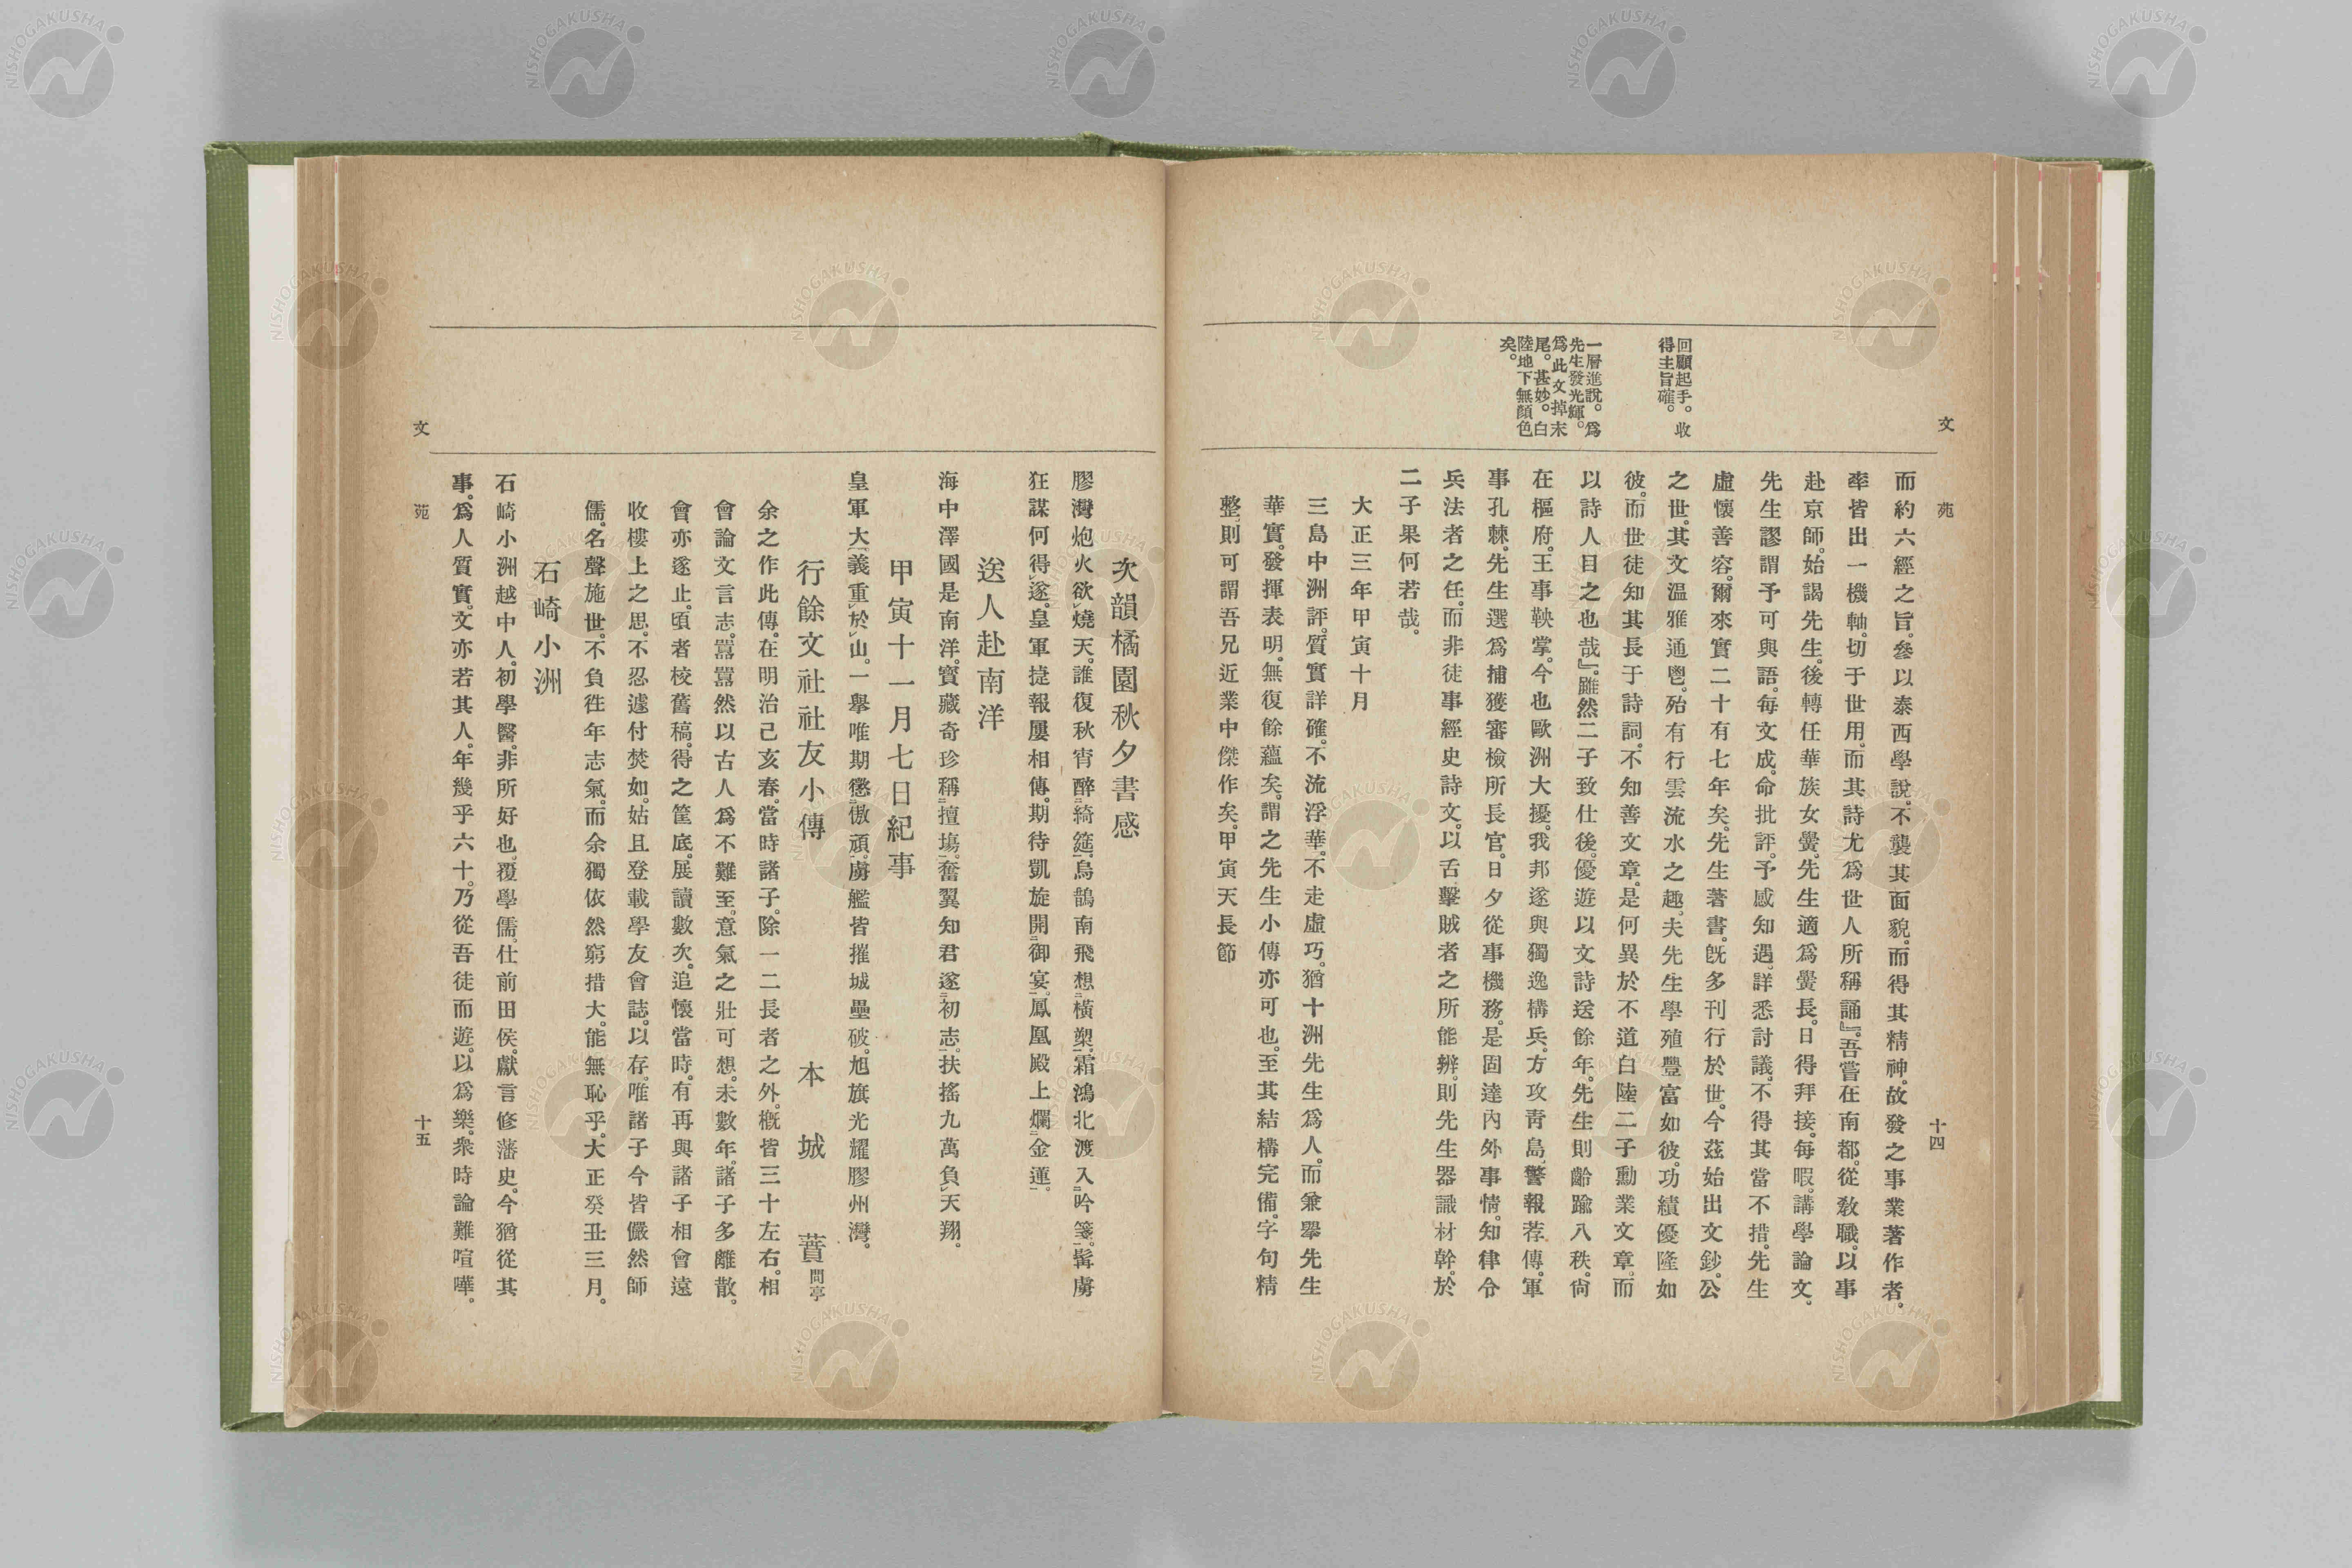 文苑
十四
回顧起手。收
得主旨確。
一層進說。爲
先生發光輝。
爲此文掉末
尾。甚妙。白
陸地下無顏色
矣。
而約六經之旨。參以泰西學說。不襲其面貌。而得其精神。故發之事業著作者。
率皆出一機軸。切于世用。而其詩尤爲世人所稱誦』。吾嘗在南都。從敎職。以事
赴京師。始謁先生。後轉任華族女黌。先生適爲黌長。日得拜接。每暇。講學論文。
先生謬謂予可與語。每文成。命批評。予感知遇。詳悉討議。不得其當不措。先生
虛懷善容。爾來實二十有七年矣。先生著書。旣多刊行於世。今茲始出文鈔。公
之世。其文溫雅通鬯。殆有行雲流水之趣。夫先生學殖豐富如彼。功績優隆如
彼。而世徒知其長于詩詞。不知善文章。是何異於不道白陸二子勳業文章。而
以詩人目之也哉』。雖然二子致仕後。優遊以文詩送餘年。先生則齡踰八秩。尙
在樞府。王事鞅掌。今也歐洲大擾。我邦遂與獨逸構兵。方攻靑島。警報荐傳。軍
事孔棘。先生選爲捕獲審檢所長官。日夕從事機務。是固達內外事情。知律令
兵法者之任。而非徒事經史詩文。以舌擊賊者之所能辨。則先生器識材幹。於
二子果何若哉。
大正三年甲寅十月
三島中洲評。質實詳確。不流浮華。不走虛巧。猶十洲先生爲人。而兼擧先生
華實。發揮表明。無復餘蘊矣。謂之先生小傳亦可也。至其結構完備。字句精
整。則可謂吾兄近業中傑作矣。甲寅天長節
次韻橘園秋夕書感
膠灣炮火欲燒天。誰復秋宵醉綺筵。烏鵲南飛想橫槊。霜鴻北渡入吟箋。髯虜
狂謀何得遂。皇軍捷報屢相傳。期待凱旋開御宴。鳳凰殿上爛金蓮。
送人赴南洋
海中澤國是南洋。寶藏奇珍稱擅塲。奮翼知君遂初志。扶搖九萬負天翔。
甲寅十一月七日紀事
皇軍大義重於山。一擧唯期懲傲頑。虜艦皆摧城壘破。旭旗光耀膠州灣。
行餘文社社友小傳　本城蕡問亭
余之作此傳。在明治己亥春。當時諸子。除一二長者之外。槪皆三十左右。相
會論文言志。囂囂然以古人爲不難至。意氣之壯可想。未數年。諸子多離散。
會亦遂止。頃者校舊稿。得之筐底。展讀數次。追懷當時。有再與諸子相會遠
收樓上之思。不忍遽付焚如。姑且登載學友會誌。以存。唯諸子今皆儼然師
儒。名聲施世。不負徃年志氣。而余獨依然窮措大。能無恥乎。大正癸丑三月。
石崎小洲
石崎小洲越中人。初學醫。非所好也。覆學儒。仕前田侯。獻言修藩史。今猶從其
事。爲人質實。文亦若其人。年幾乎六十。乃從吾徒而遊。以爲樂。衆時論難喧嘩。
文苑
十五